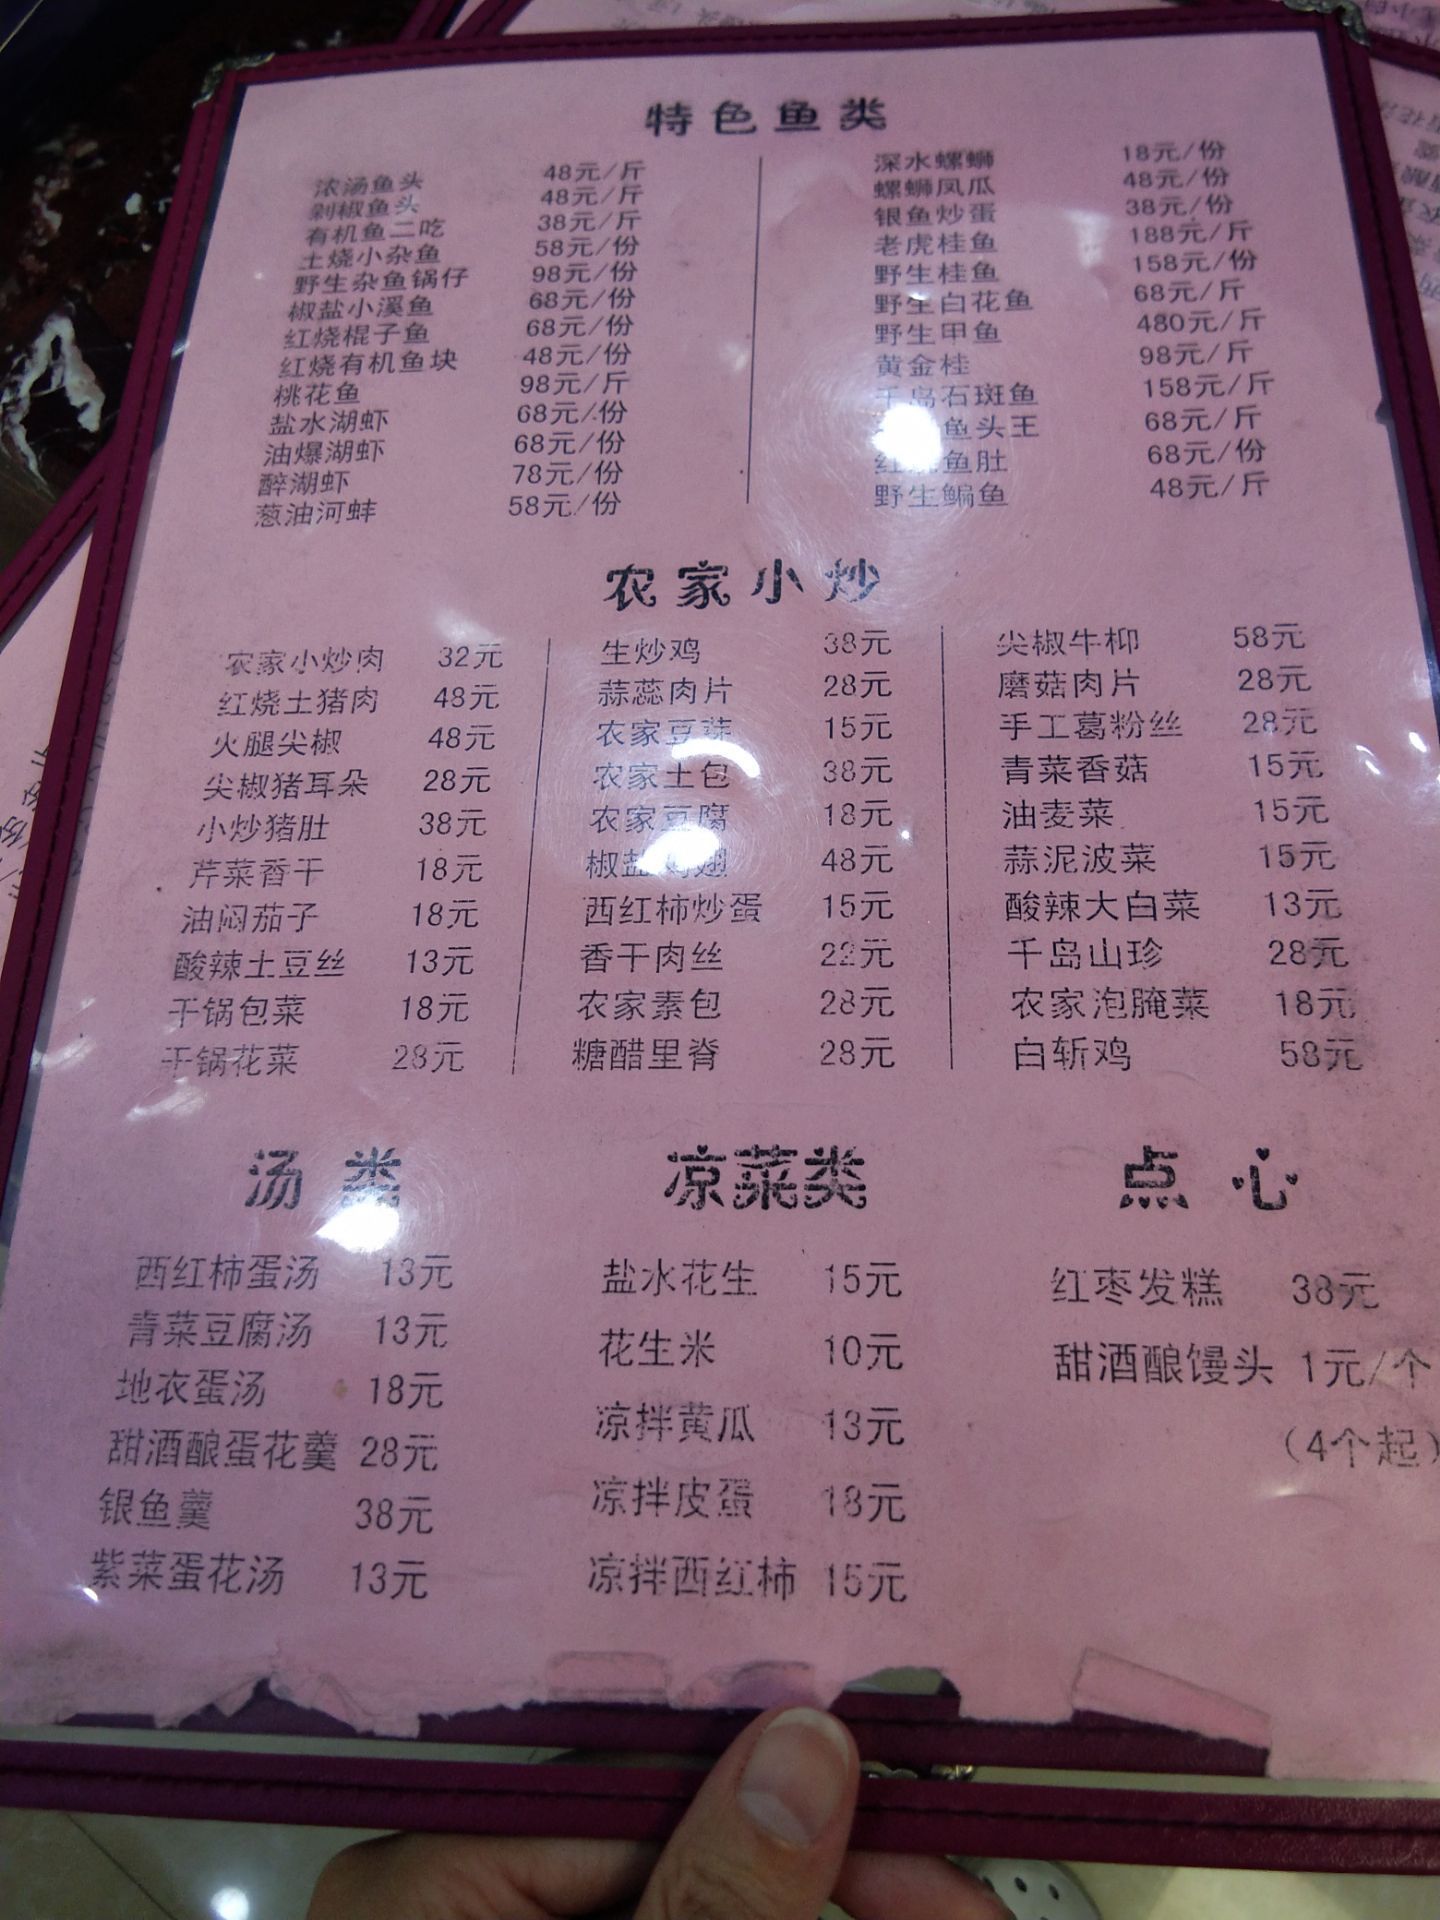 特色鱼类
浓汤鱼头 48元/斤
剁椒鱼头 48元/斤
有机鱼二吃 38元/斤
土烧小杂鱼 58元/份
野生杂鱼锅仔 98元/份
椒盐小溪鱼 68元/份
红烧棍子鱼 68元/份
红烧有机鱼块 48元/份
桃花鱼 98元/斤
盐水湖虾 68元/份
油爆湖虾 68元/份
醉湖虾 78元/份
葱油河蚌 58元/份
深水螺蛳 18元/份
螺蛳凤瓜 48元/份
银鱼炒蛋 38元/份
老虎桂鱼 188元/斤
野生桂鱼 158元/份
野生白花鱼 68元/斤
野生甲鱼 480元/斤
黄金桂 98元/斤
千岛石斑鱼 158元/斤
鱼头王 68元/斤
红烧鱼肚 68元/份
野生鳊鱼 48元/斤
农家小炒
农家小炒肉 32元
红烧土猪肉 48元
火腿尖椒 48元
尖椒猪耳朵 28元
小炒猪肚 38元
芹菜香干 18元
油闷茄子 18元
酸辣土豆丝 13元
干锅包菜 18元
干锅花菜 28元
生炒鸡 38元
蒜蕊肉片 28元
农家豆芽 15元
农家土包 38元
农家豆腐 18元
椒盐鸡翅 48元
西红柿炒蛋 15元
香干肉丝 22元
农家素包 28元
糖醋里脊 28元
尖椒牛柳 58元
磨菇肉片 28元
手工葛粉丝 28元
青菜香菇 15元
油麦菜 15元
蒜泥波菜 15元
酸辣大白菜 13元
千岛山珍 28元
农家泡腌菜 18元
白斩鸡 58元
汤类
西红柿蛋汤 13元
青菜豆腐汤 13元
地衣蛋汤 18元
甜酒酿蛋花羹 28元
银鱼羹 38元
紫菜蛋花汤 13元
凉菜类
盐水花生 15元
花生米 10元
凉拌黄瓜 13元
凉拌皮蛋 18元
凉拌西红柿 15元
点心
红枣发糕 38元
甜酒酿馒头 1元/个
（4个起）